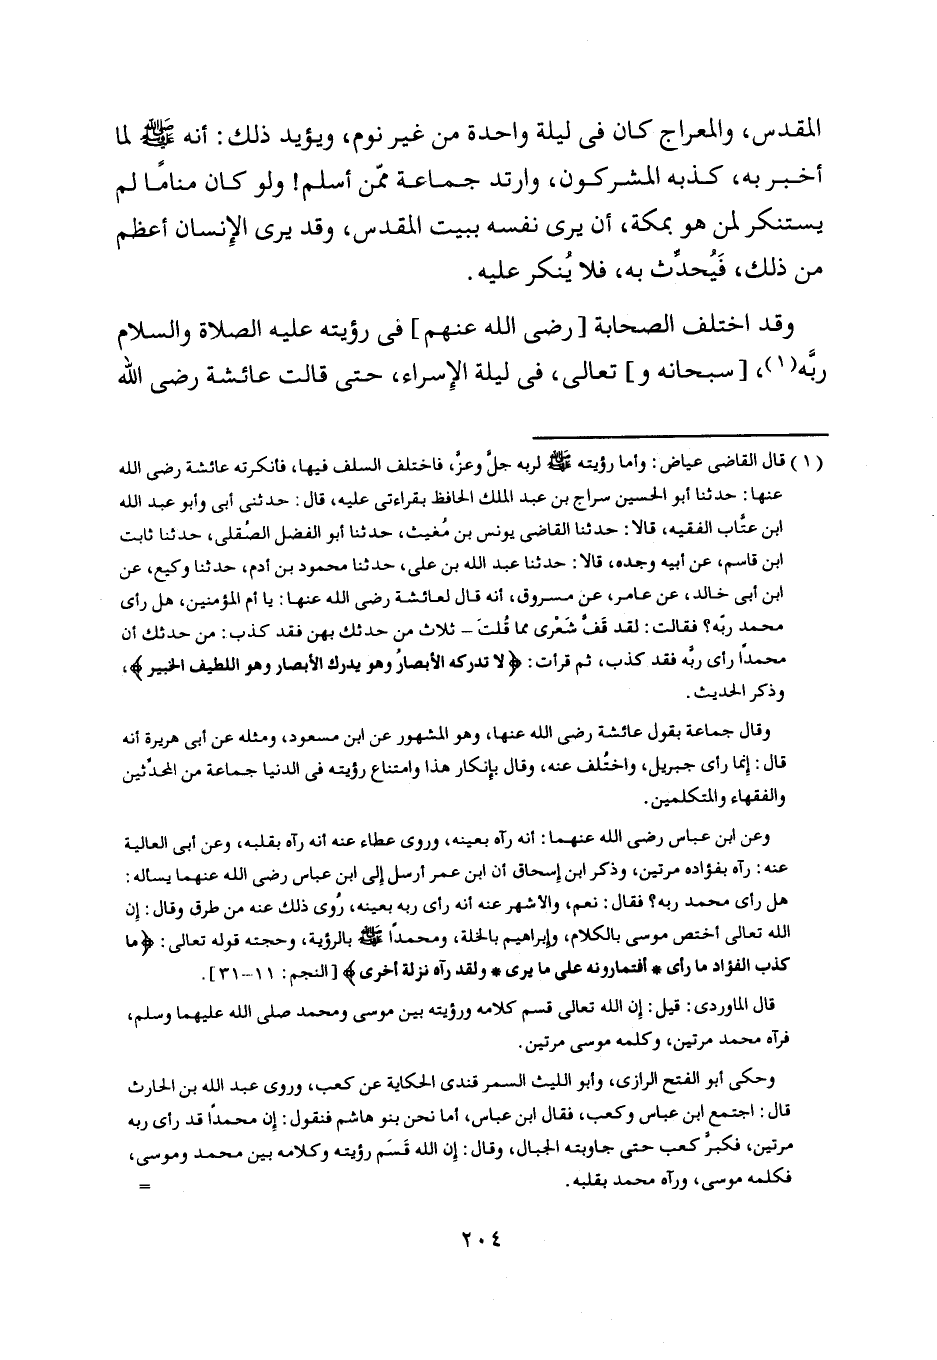 المقدس، والمعراج كان فى ليلة واحدة من غير نوم، ويؤيد ذلك: أنه ﷺ لما
أخبر به، كذبه المشركون، وارتد جماعة ممّن أسلم! ولو كان منامًا لم
يستنكر لمن هو بمكة، أن يرى نفسه ببيت المقدس، وقد يرى الإنسان أعظم
من ذلك، فَيُحدِّث به، فلا يُنكر عليه.
وقد اختلف الصحابة [رضى الله عنهم] فى رؤيته عليه الصلاة والسلام
ربَّه(١)، [سبحانه و] تعالى، فى ليلة الإسراء، حتى قالت عائشة رضى الله
(١) قال القاضى عياض: وأما رؤيته ﷺ لربه جلَّ وعزَّ، فاختلف السلف فيها، فأنكرته عائشة رضى الله
عنها: حدثنا أبو الحسين سراج بن عبد الملك الحافظ بقراءتى عليه، قال: حدثنى أبى وأبو عبد الله
ابن عتَّاب الفقيه، قالا: حدثنا القاضى يونس بن مُغيث، حدثنا أبو الفضل الصقلى، حدثنا ثابت
ابن قاسم، عن أبيه وجده، قالا: حدثنا عبد الله بن على، حدثنا محمود بن أدم، حدثنا وكيع، عن
ابن أبى خالد، عن عامر، عن مسروق، أنه قال لعائشة رضى الله عنها: يا أم المؤمنين، هل رأى
محمد ربّه؟ فقالت: لقد قَفَّ شَعْرى مما قُلتَ – ثلاث من حدثك بهن فقد كذب: من حدثك أن
محمدًا رأى ربَّه فقد كذب، ثم قرأت: ﴿لا تدركه الأبصارُ وهو يدرك الأبصار وهو اللطيف الخبير﴾،
وذكر الحديث.
وقال جماعة بقول عائشة رضى الله عنها، وهو المشهور عن ابن مسعود، ومثله عن أبى هريرة أنه
قال: إنما رأى جبريل، واختُلف عنه، وقال بإنكار هذا وامتناع رؤيته فى الدنيا جماعة من المحدِّثين
والفقهاء والمتكلمين.
وعن ابن عباس رضى الله عنهما: أنه رآه بعينه، وروى عطاء عنه أنه رآه بقلبه، وعن أبى العالية
عنه: رآه بفؤاده مرتين، وذكر ابن إسحاق أن ابن عمر أرسل إلى ابن عباس رضى الله عنهما يساله:
هل رأى محمد ربه؟ فقال: نعم، والاشهر عنه أنه رأى ربه بعينه، رُوى ذلك عنه من طرق وقال: إن
الله تعالى أختص موسى بالكلام، وإبراهيم بالخلة، ومحمدًا ﷺ بالرؤية، وحجته قوله تعالى: ﴿ما
كذب الفؤاد ما رأى * أفتمارونه على ما يرى * ولقد رآه نزلة أخرى﴾ [النجم: ١١-٣١].
قال الماوردى: قيل: إن الله تعالى قسم كلامه ورؤيته بين موسى ومحمد صلى الله عليهما وسلم،
فرآه محمد مرتين، وكلمه موسى مرتين.
وحكى أبو الفتح الرازى، وأبو الليث السمر قندى الحكاية عن كعب، وروى عبد الله بن الحارث
قال: اجتمع ابن عباس وكعب، فقال ابن عباس، أما نحن بنو هاشم فنقول: إن محمدًا قد رأى ربه
مرتين، فكبَّر كعب حتى جاوبته الجبال، وقال: إن الله قَسَم رؤيته وكلامه بين محمد وموسى،
فكلمه موسى، ورآه محمد بقلبه. =
٢٠٤